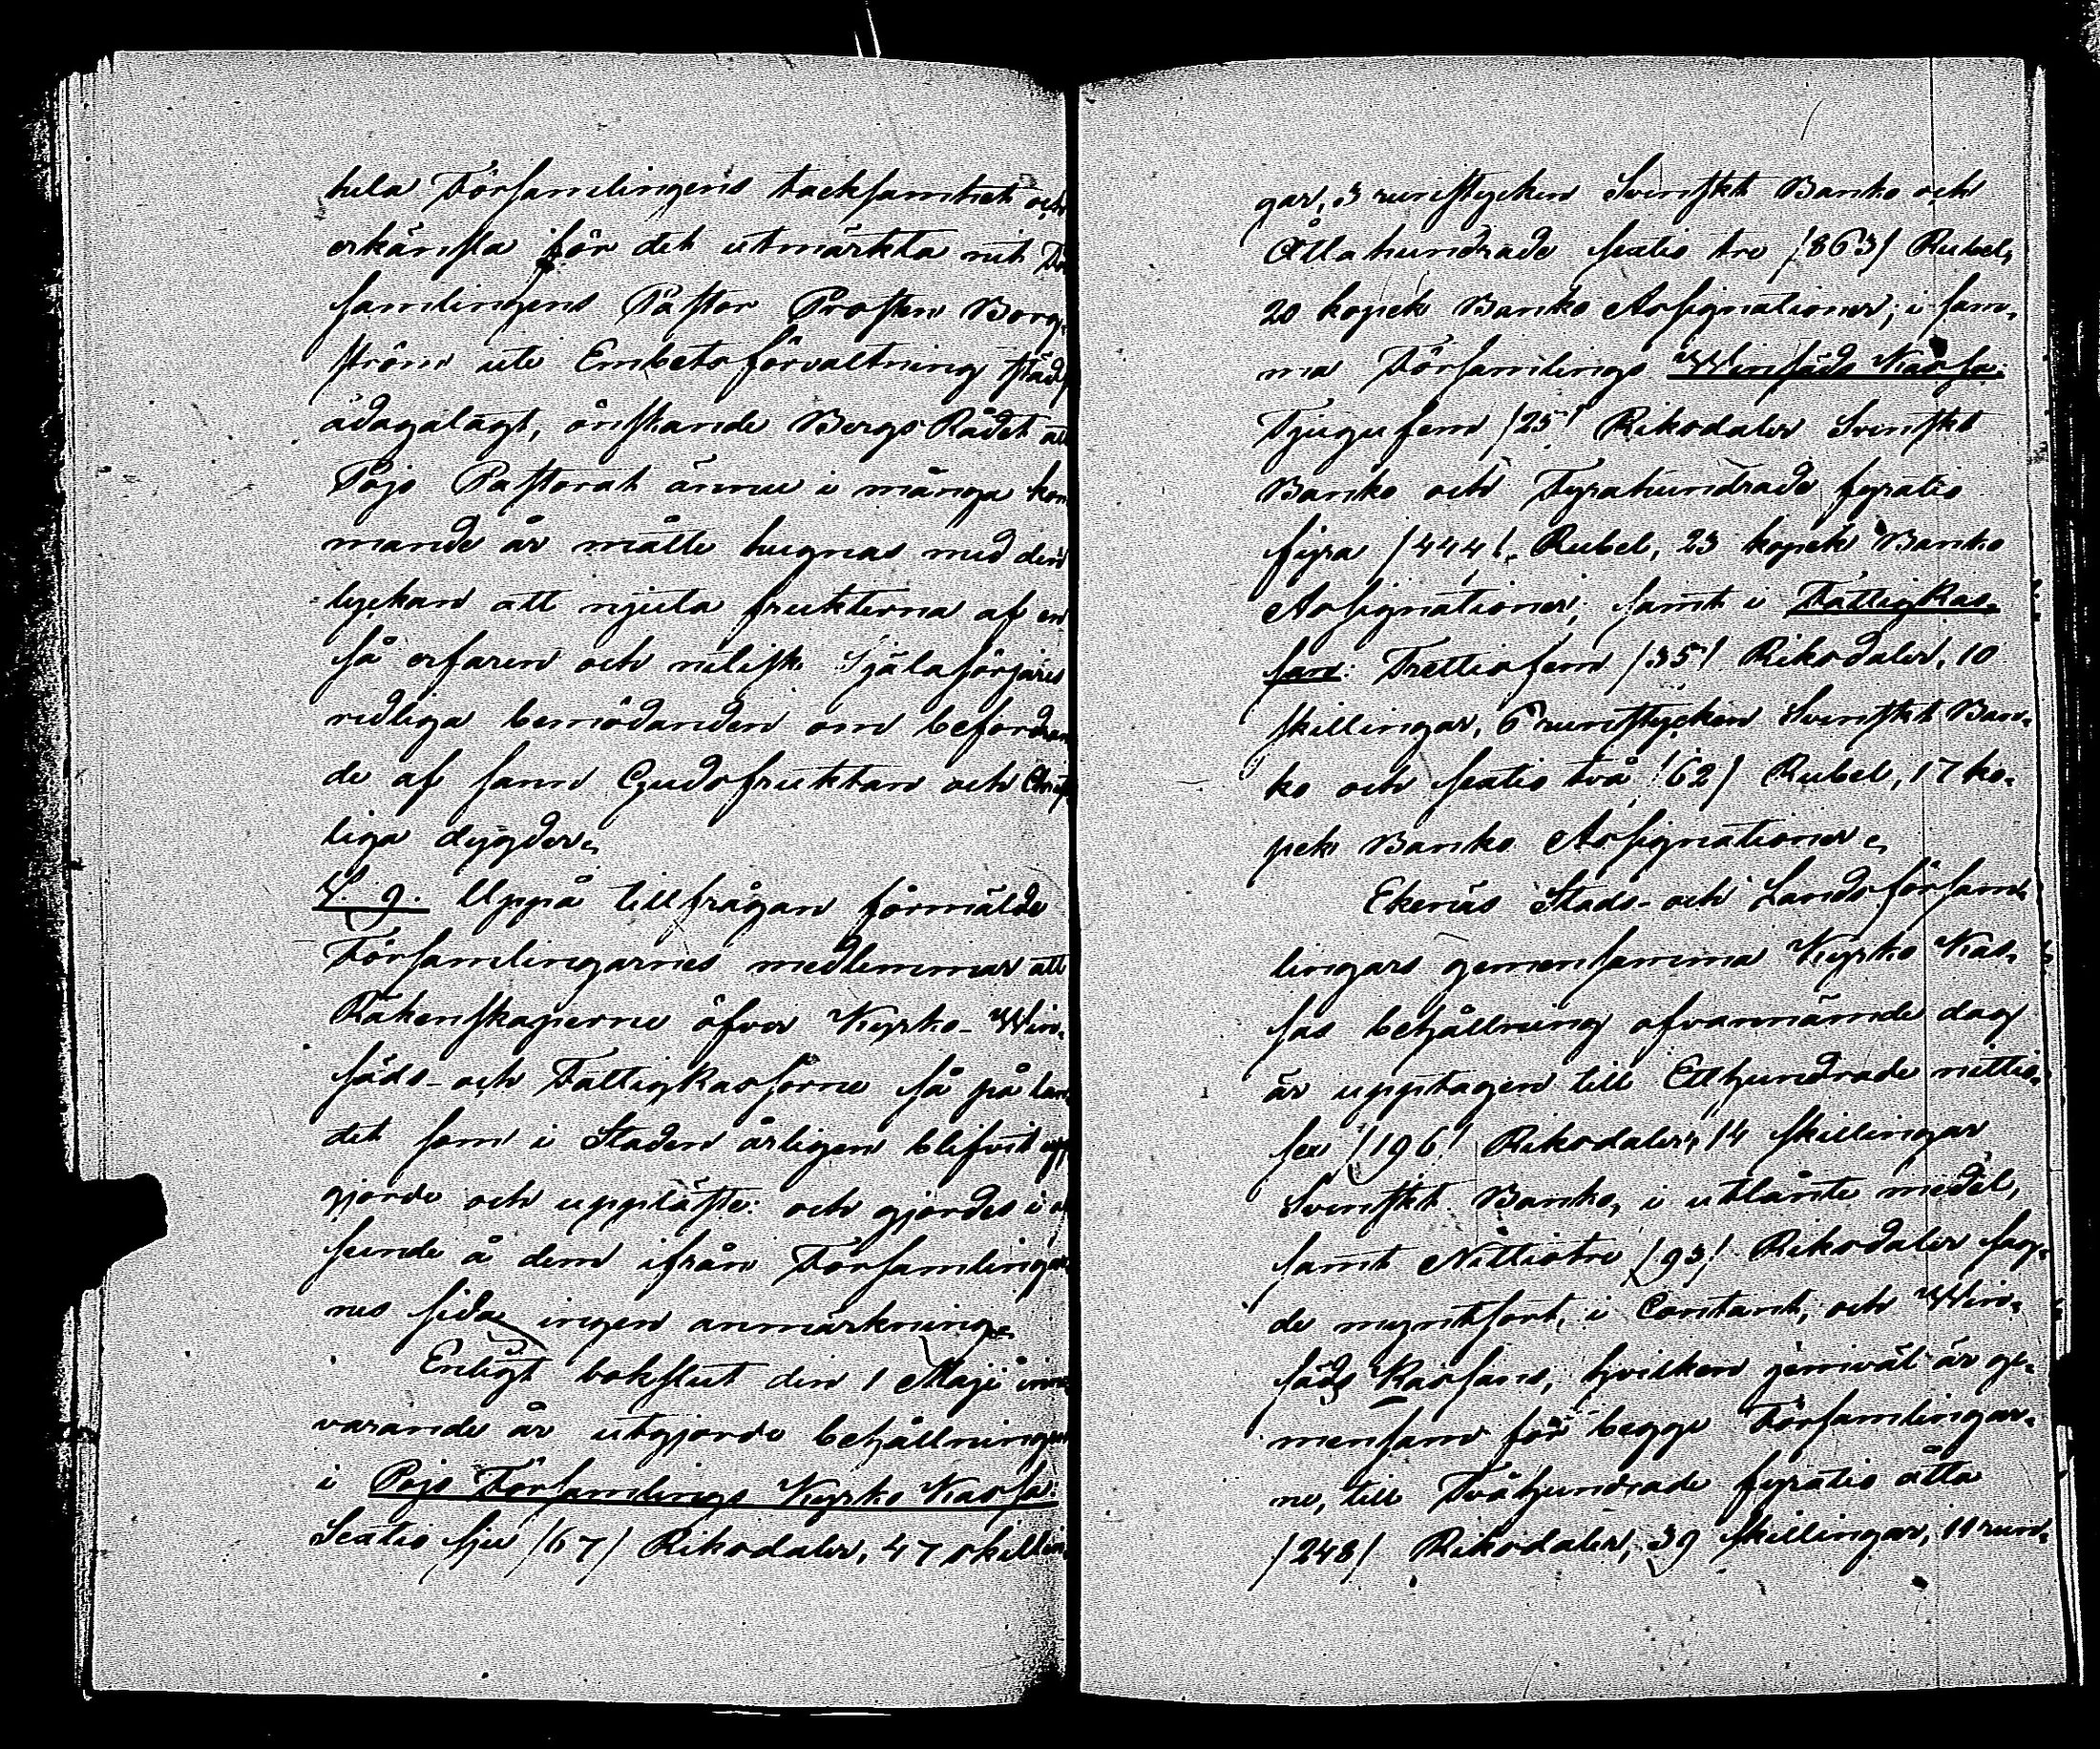 hela Församlingens tacksamhet och
erkänsla för det utmärkta nit För
samlingens Pastor Prosten Borg-
ström uti Embetsförvaltning städs
ådagalagt, önskande BergsRådet att
Pojo Pastorat ännu i många kom
mande år måtte hugnas med den
lyckan att njuta frukterna af en
så erfaren och nitisk Själasörjares
redliga bemödanden om befordran
de af sann Gudsfruktan och Christ
liga dygder.
§. 9. Uppå tillfrågan förmälde
Församlingarnes medlemmar att
Räkenskaperne öfver Kyrko- Win-
säds- och Fattigkassorne så på lan
det som i Staden årligen blifvit upp
gjorde och uppläste: och gjordes i af
seende å dem ifrån Församlingar
nes sida ingen anmärkning.
Enligt bokslut den 1 Maji inne
varande år utgjorde behållningen
i Pojo Församlings Kyrko Kassa:
Sextio sju /67/ Riksdaler, 47 skillin
gar, 3 runstycken Svenskt Banko och
Åttahundrade sextio tre /863/ Rubel,
20 kopek Banko Assignationer; i sam-
ma Församlings Winsäds Kassa:
Tjugufem /25/ Riksdaler Svenskt
Banko och Fyrahundrade fyratio
fyra /444/. Rubel, 23 kopek Banko
Assignationer; samt i FattigKas-
san: Trettiofem /35/ Riksdaler, 10
skillingar, 6 runstycken Svenskt Ban-
ko och sextio två /62/ Rubel, 17 ko-
pek Banko Assignationer.
Ekenäs Stads- och Landsförsam-
lingars gemensamma Kyrko Kas-
sas behållning ofvannämnde dag
är upptagen till Etthundrade nittio-
sex /196/ Riksdaler, 14 skillingar
Svenskt Banko, i utlånte medel,
samt Nittiotre /93/ Riksdaler sag-
de myntsort, i Contant, och Win-
säds Kassans, hvilken jemväl är ge-
mensam för begge Församlingar-
ne, till Tvåhundrade fyratio åtta
/248/ Riksdaler, 39 skillingar, 11 run-